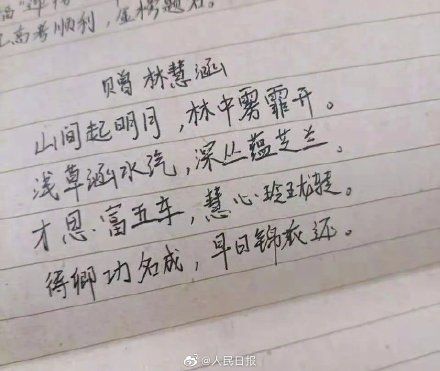 高考顺利，金榜题名。
赠 林慧涵
山间起明月，林中雾霏开。
浅草涵水汽，深丛蕴芝兰。
才思富五车，慧心玲珑琴。
得卿功名成，早日锦衣还。
@人民日报